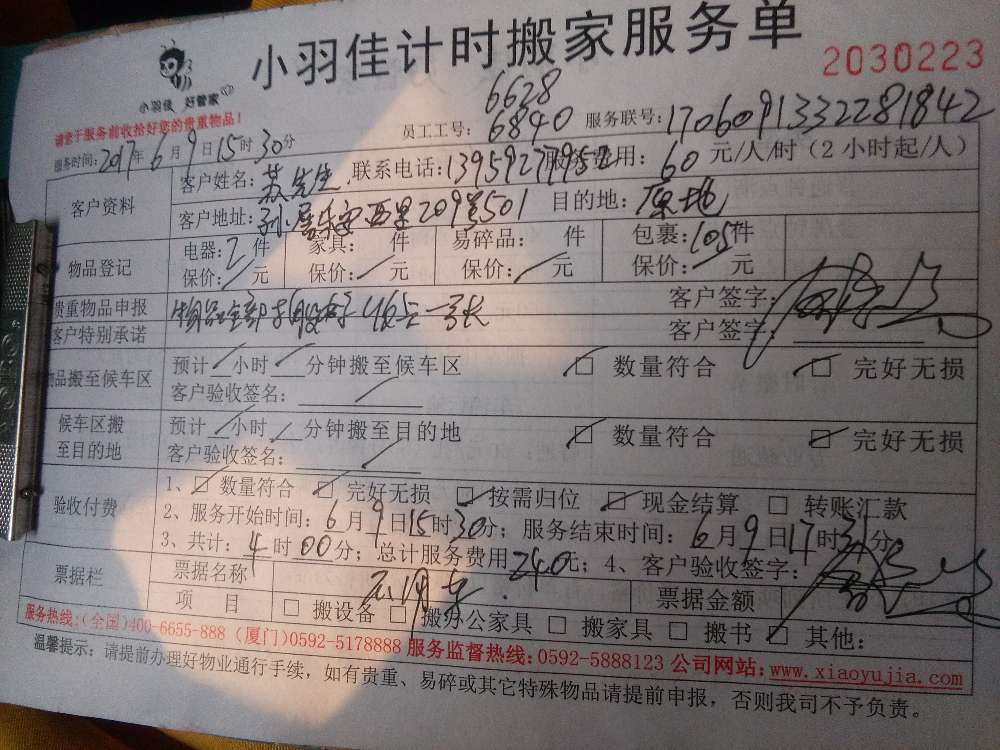 小羽佳计时搬家服务单
小羽佳 好管家
2030223
请您于服务前收拾好您的贵重物品！
6628
员工工号：6840 服务联号：1706091332281842
服务时间：2017年6月9日15时30分
客户资料 客户姓名：苏先生 联系电话：13959277952 费用：60元/人/时（2小时起/人）
客户地址：乐安西里209号501 目的地：原地
物品登记 电器：2件 家具：件 易碎品：件 包裹：105件
保价：元 保价：元 保价：元 保价：元
贵重物品申报 物品全部 客户签字：
客户特别承诺 客户签字：
物品搬至候车区 预计 小时 分钟搬至候车区 数量符合 完好无损
客户验收签名：
候车区搬至目的地 预计 小时 分钟搬至目的地 数量符合 完好无损
客户验收签名：
验收付费 1、数量符合 完好无损 按需归位 现金结算 转账汇款
2、服务开始时间：6月9日15时30分；服务结束时间：6月9日17时31分
3、共计：4时00分；总计服务费用240元；4、客户验收签字：
票据栏 票据名称 票据金额
项目 搬设备 搬办公家具 搬家具 搬书 其他：
服务热线：（全国）400-6655-888（厦门）0592-5178888 服务监督热线：0592-5888123 公司网站：www.xiaoyujia.com
温馨提示：请提前办理好物业通行手续，如有贵重、易碎或其它特殊物品请提前申报，否则我司不予负责。